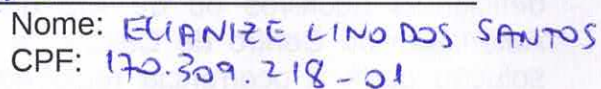 Nome: ELIANIZE LINO DOS SANTOS
CPF: 170.309.218-01